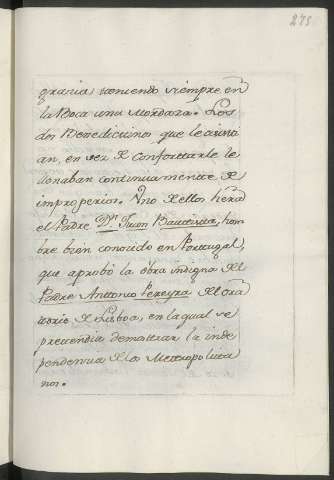 275
gracia teniendo siempre en
la Boca una Mordaza. Los
dos Benedictinos que le asisti
an, en vez de Confortarle le
llenaban continuamente de
improperios. Uno de ellos hera
el Padre Dn. Juan Bautista, hom
bre bien conocido en Portugal,
que aprobó la obra indigna del
Padre Antonio Pereyra del Ora
torio de Lisboa, en la qual se
pretendia demostrar la inde
pendencia de los Metropolita
nos.